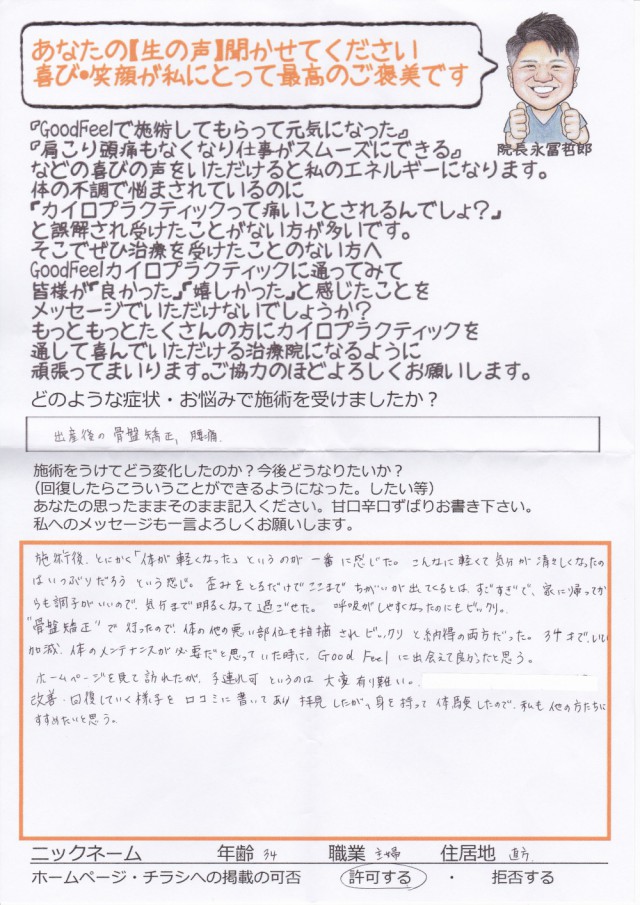 あなたの【生の声】聞かせてください
喜び・笑顔が私にとって最高のご褒美です
院長 永冨哲郎
『GoodFeelで施術してもらって元気になった』
『肩こり頭痛もなくなり仕事がスムーズにできる』
などの喜びの声をいただけると私のエネルギーになります。
体の不調で悩まされているのに
「カイロプラクティックって痛いことされるんでしょ？」
と誤解され受けたことがない方が多いです。
そこでぜひ治療を受けたことのない方へ
GoodFeelカイロプラクティックに通ってみて
皆様が「良かった」「嬉しかった」と感じたことを
メッセージでいただけないでしょうか？
もっともっとたくさんの方にカイロプラクティックを
通して喜んでいただける治療院になるように
頑張ってまいります。ご協力のほどよろしくお願いします。
どのような症状・お悩みで施術を受けましたか？
出産後の骨盤矯正, 腰痛
施術をうけてどう変化したのか？今後どうなりたいか？
（回復したらこういうことができるようになった。したい等）
あなたの思ったままそのまま記入ください。甘口辛口ずばりお書き下さい。
私へのメッセージも一言よろしくお願いします。
施術後、とにかく「体が軽くなった」というのが一番に感じた。こんなに軽くて気分が清々しくなったの
はいつぶりだろうという感じ。歪みをとるだけでここまでちがいが出てくるとは、すごすぎで、家に帰ってか
らも調子がいいので、気分まで明るくなって過ごせた。呼吸がしやすくなったのにもビックリ。
"骨盤矯正"で行ったので、体の他の悪い部位も指摘されビックリと納得の両方だった。34才で、いい
加減、体のメンテナンスが必要だと思っていた時に、Good Feelに出会えて良かったと思う。
ホームページを見て訪れたが、子連れ可というのは大変有り難い。
改善・回復していく様子を口コミに書いてあり拝見したが、身を持って体験したので、私も他の方たちに
すすめたいと思う。
ニックネーム 年齢 34 職業 主婦 住居地 直方
ホームページ・チラシへの掲載の可否 許可する ・ 拒否する